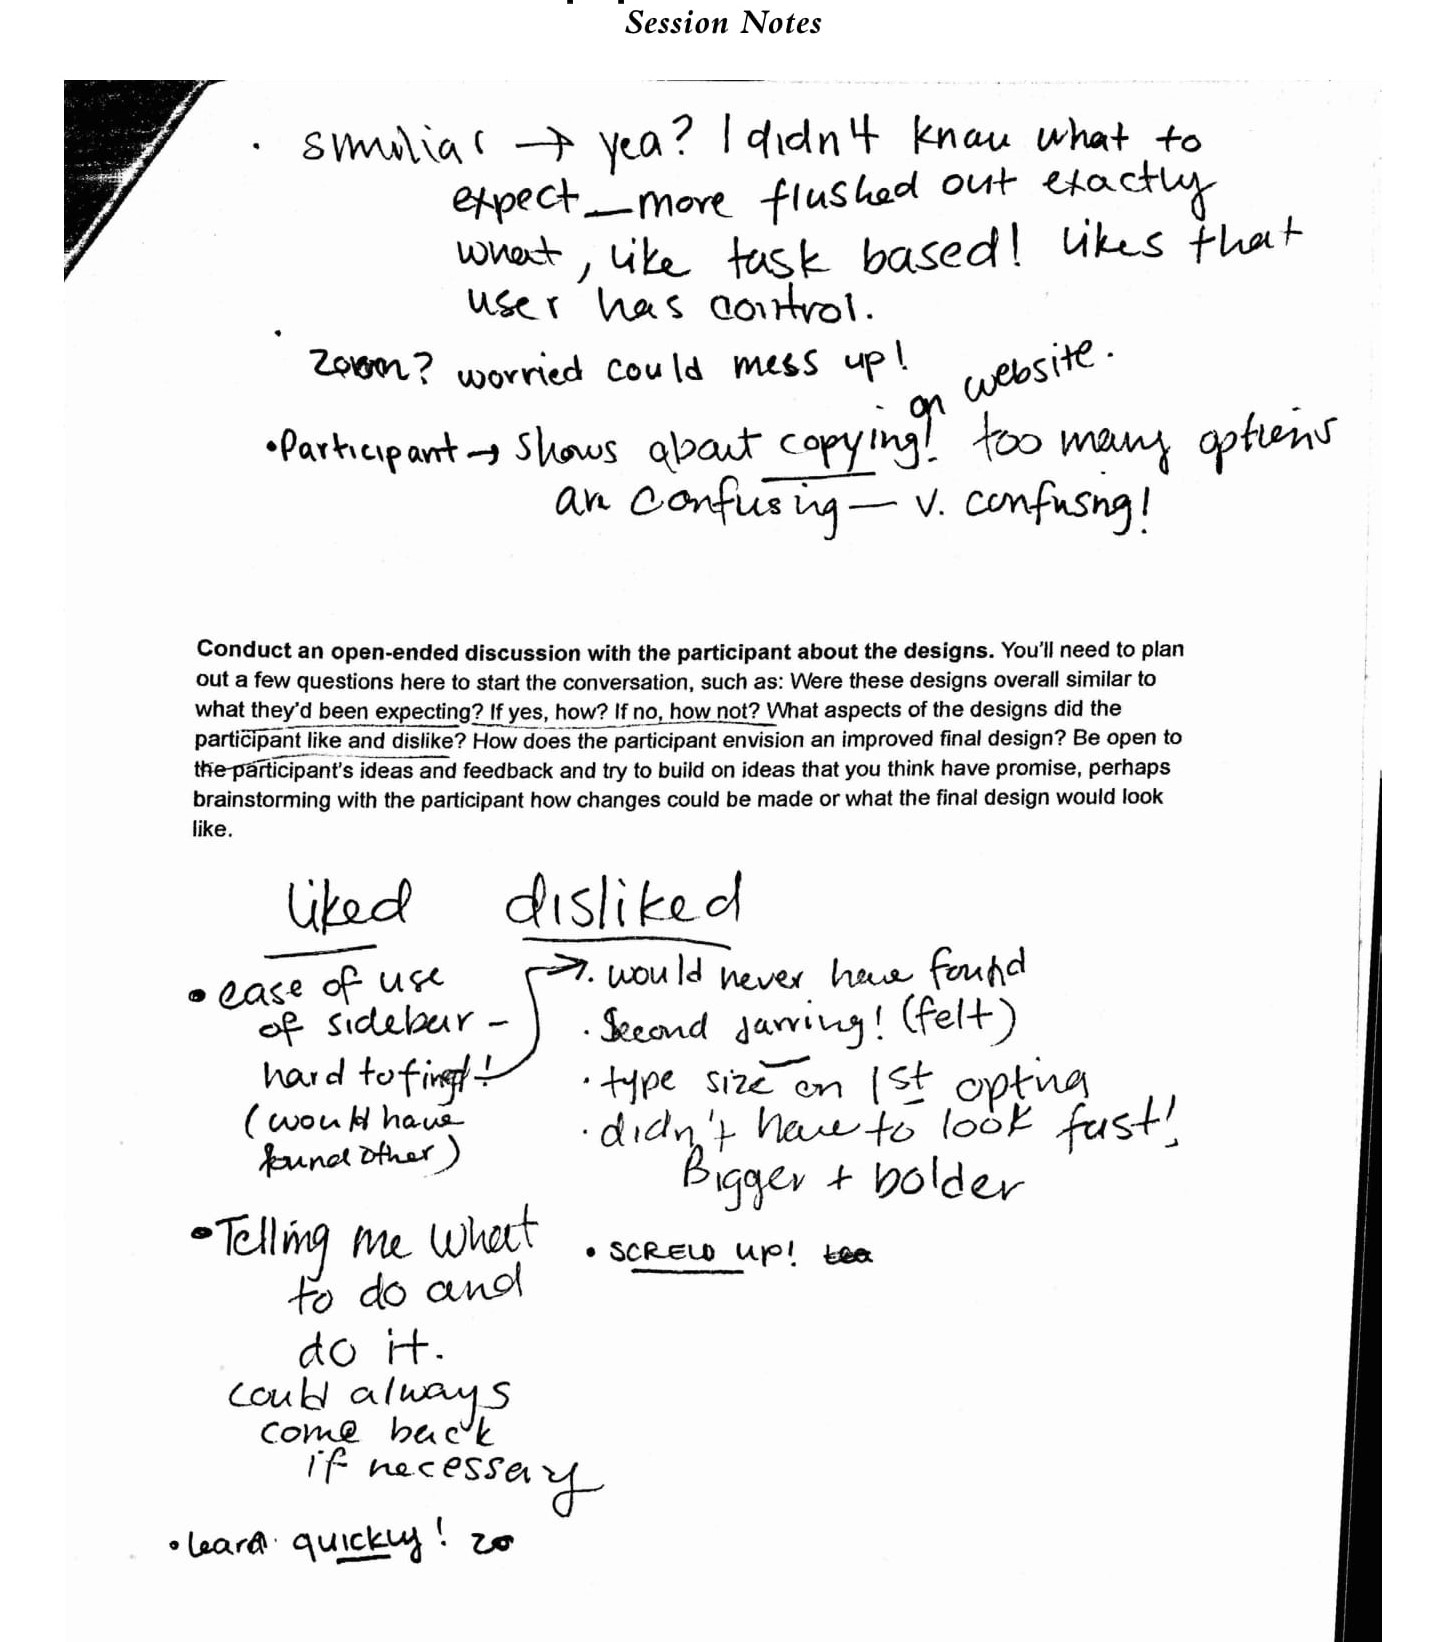 Session Notes
· similiar → yea? I didn't know what to
expect — more flushed out exactly
what, like task based! likes that
user has control.
· zoom? worried could mess up!
on website.
• Participant → shows about copying! too many options
an confusing — v. confusng!
Conduct an open-ended discussion with the participant about the designs. You'll need to plan
out a few questions here to start the conversation, such as: Were these designs overall similar to
what they'd been expecting? If yes, how? If no, how not? What aspects of the designs did the
participant like and dislike? How does the participant envision an improved final design? Be open to
the participant's ideas and feedback and try to build on ideas that you think have promise, perhaps
brainstorming with the participant how changes could be made or what the final design would look
like.
liked disliked
• ease of use
of sidebar –
hard to find!
(would have
found other)
• Telling me what
to do and
do it.
could always
come back
if necessary
• learn quickly!
· would never have found
· Second jarring! (felt)
· type size on 1st option
· didn't have to look fast!
Bigger + bolder
• SCREW up!